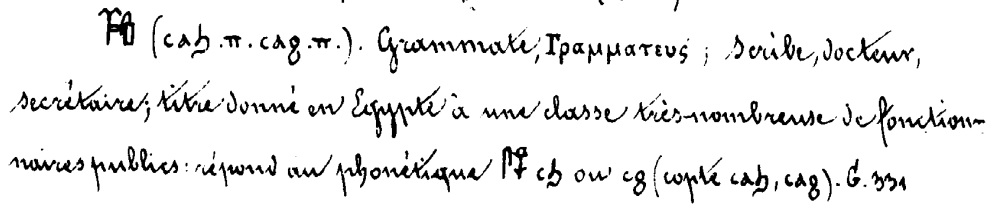 (ⲥⲁϧ.ⲡ. ⲥⲁϩ.ⲡ.). Grammate, Γραμματευς ; scribe, docteur,
secrétaire; titre donné en Egypte à une classe très-nombreuse de fonction-
naires publics: répond au phonétique ⲥϧ ou ⲥϩ (copte ⲥⲁϧ, ⲥⲁϩ). G. 331